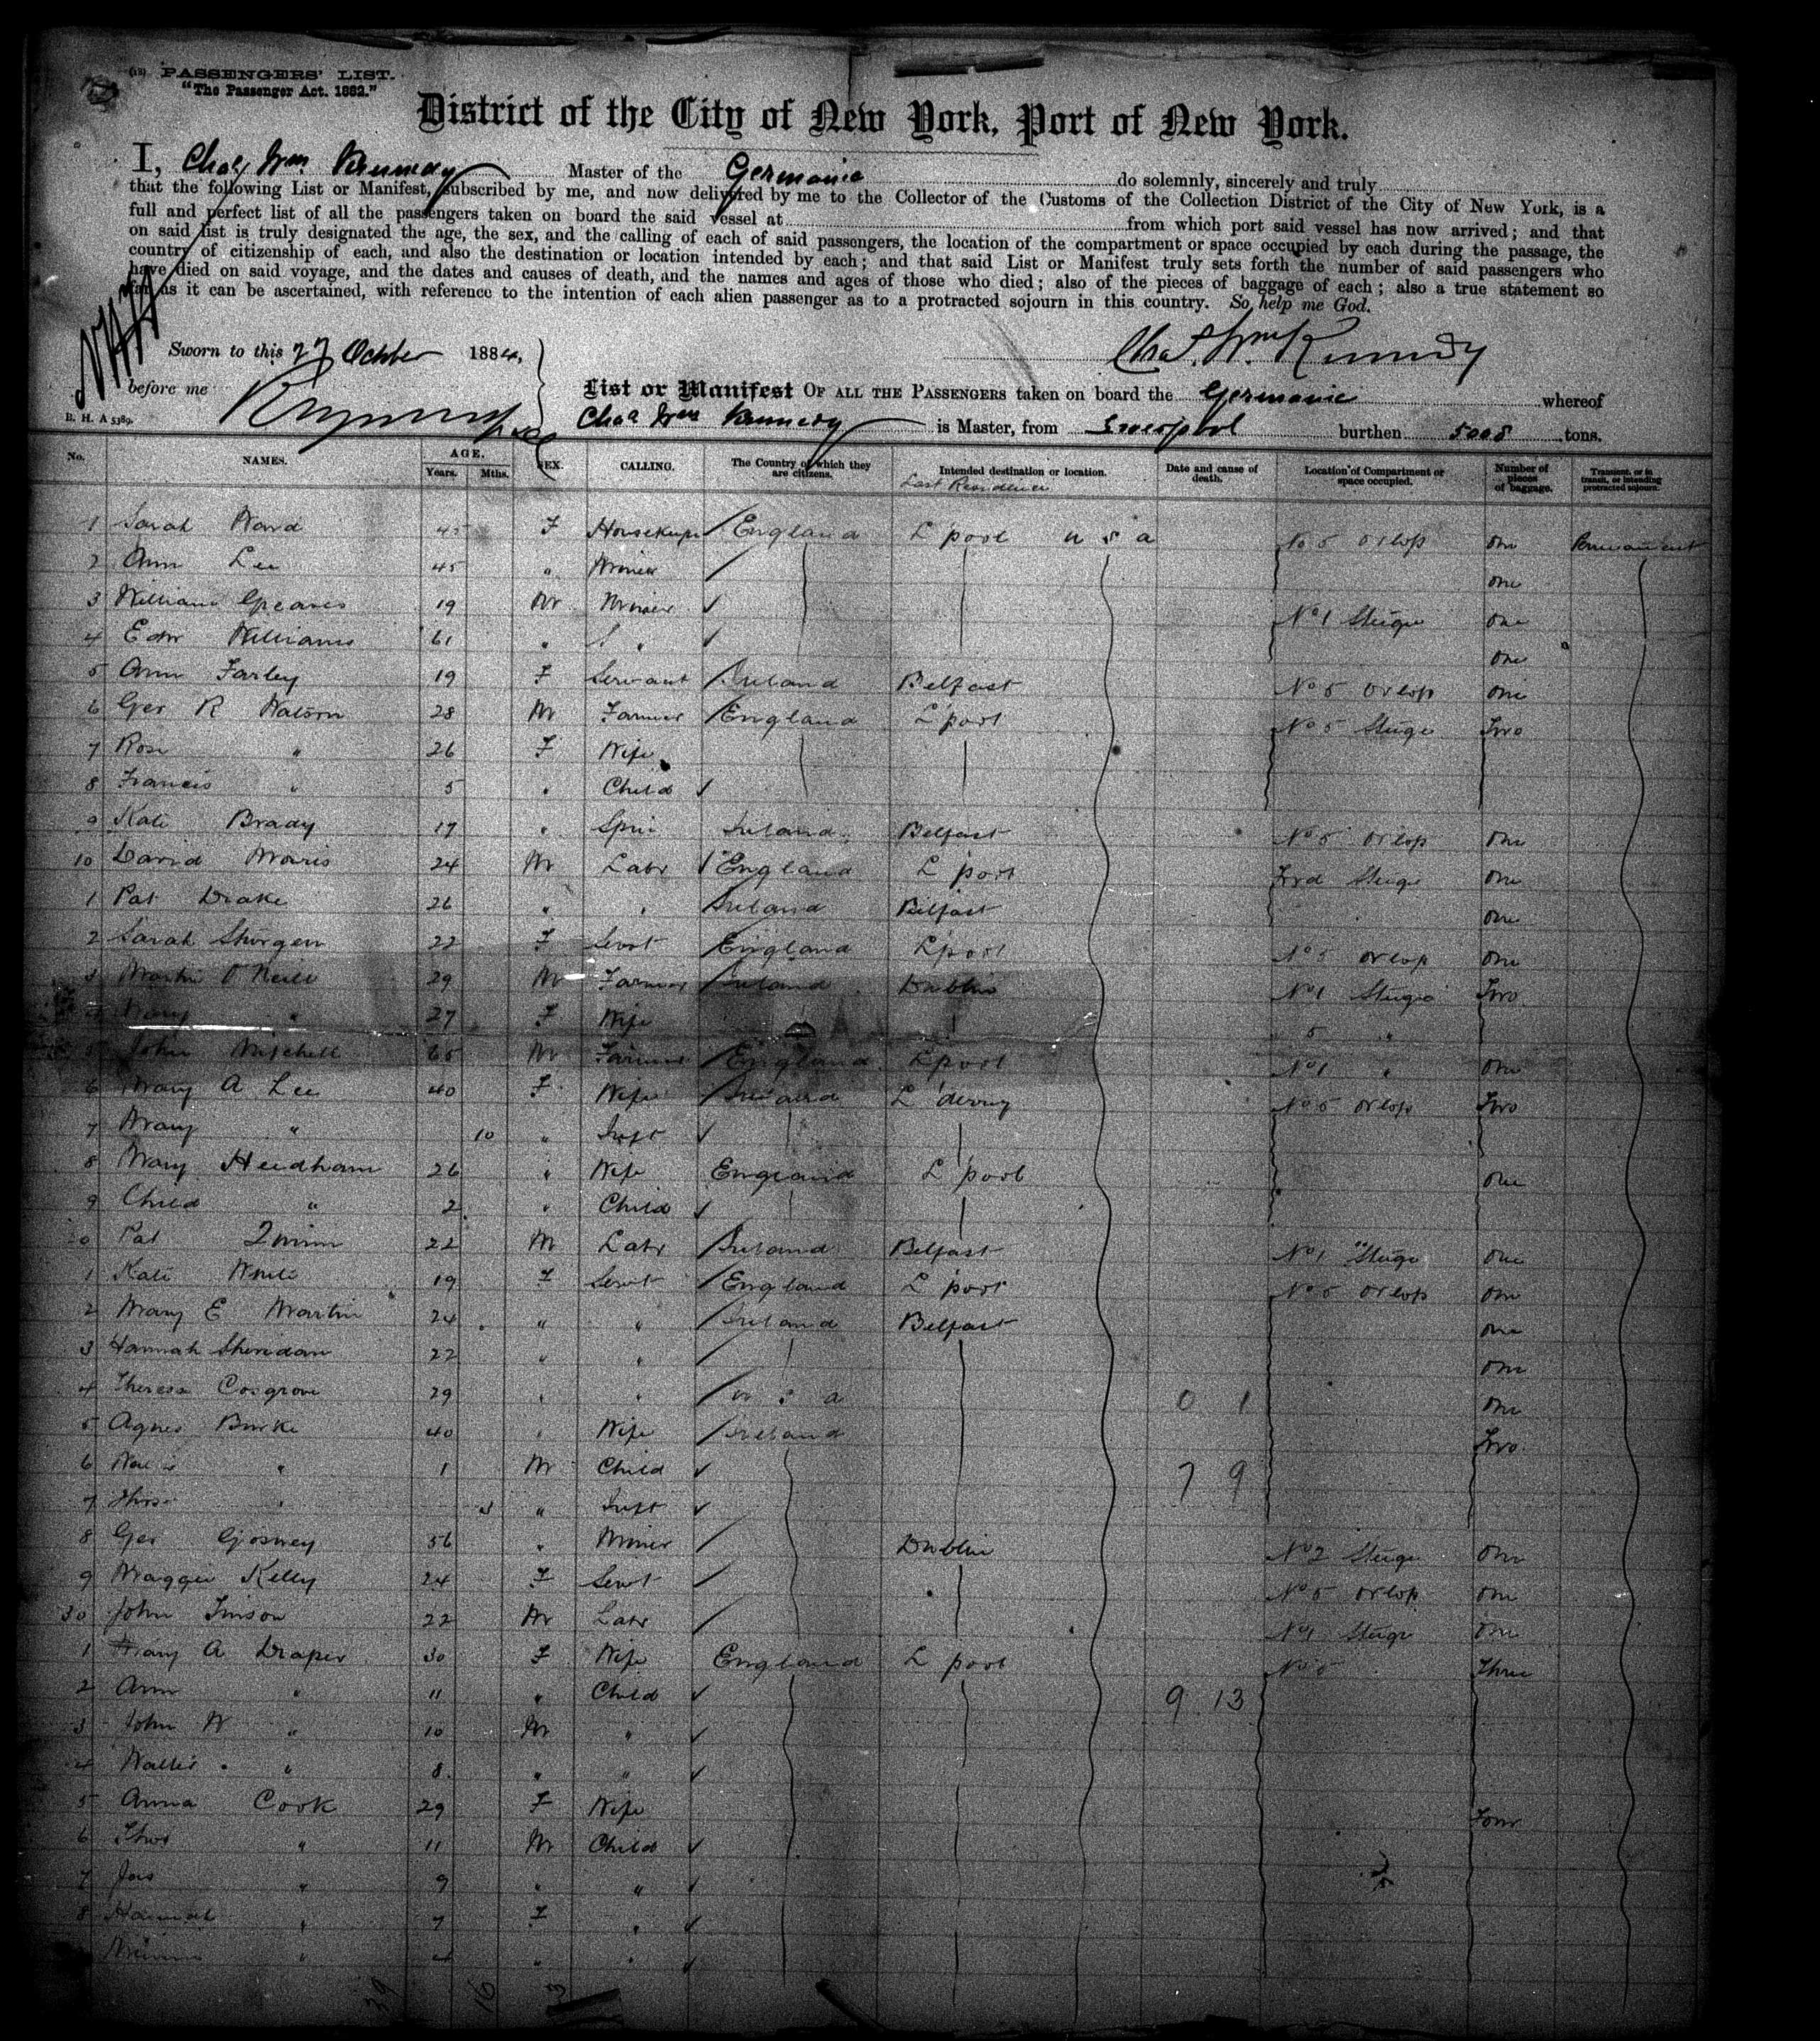 (18) PASSENGERS' LIST.
"The Passenger Act. 1882."
District of the City of New York, Port of New York.
I, Chas Wm Kennedy Master of the Germanic do solemnly, sincerely and truly
that the following List or Manifest, subscribed by me, and now delivered by me to the Collector of the Customs of the Collection District of the City of New York, is a
full and perfect list of all the passengers taken on board the said vessel at from which port said vessel has now arrived; and that
on said list is truly designated the age, the sex, and the calling of each of said passengers, the location of the compartment or space occupied by each during the passage, the
country of citizenship of each, and also the destination or location intended by each; and that said List or Manifest truly sets forth the number of said passengers who
have died on said voyage, and the dates and causes of death, and the names and ages of those who died; also of the pieces of baggage of each; also a true statement so
far as it can be ascertained, with reference to the intention of each alien passenger as to a protracted sojourn in this country. So help me God.
Sworn to this 27 October 1884, Chas. Wm Kennedy
before me
List or Manifest OF ALL THE PASSENGERS taken on board the Germanic whereof
B. H. A 5389. Chas Wm Kennedy is Master, from Liverpool burthen 5008 tons.
No. NAMES. AGE. Years. Mths. SEX. CALLING. The Country of which they are citizens. Intended destination or location. Date and cause of death. Location of Compartment or space occupied. Number of pieces of baggage. Transient, or in transit, or intending protracted sojourn.
Last Residence
1 Sarah Ward 45 F England L'pool U S A No 5 Orlop One Permanent
2 Ann Lee 45 " One
3 William 19 M Miner No 1 Stege One
4 Edw Williams 61 " " One
5 Ann Farley 19 F Servant Ireland Belfast No 5 Orlop One
6 Geo R Watson 28 M Farmer England L'pool No 5 Stege Two
7 Rose " 26 F Wife
8 Francis " 5 " Child
9 Kate Brady 17 " Spin Ireland Belfast No 5 Orlop One
10 David Morris 24 M Labr England L'pool Stege One
1 Pat Drake 26 " " Ireland Belfast One
2 Sarah 22 F Servt England L'pool No 5 Orlop One
3 Martin O'Neill 29 M Farmer Ireland Dublin No 1 Stege Two
4 Mary " 27 F Wife " 5 "
5 John Mitchell 65 M Farmer England L'pool No 1 " One
6 Mary A Lee 40 F Wife Ireland L'derry No 5 Orlop Two
7 Mary " 10 " Inft
8 Mary 26 " Wife England L'pool One
9 Child " 2 " Child
20 Pat Quinn 22 M Labr Ireland Belfast No 1 Stege One
1 Kate White 19 F Servt England L'pool No 5 Orlop One
2 Mary E Martin 24 " " Ireland Belfast One
3 Hannah Sheridan 22 " " One
4 Theresa Cosgrove 29 " " U S A 0 1 One
5 Agnes Burke 40 " Wife Ireland Two
6 " 1 M Child 7 9
7 Thos " " Inft
8 Geo 56 " Miner Dublin No 2 Stege One
9 Maggie Kelly 24 F Servt No 5 Orlop One
30 John 22 M Labr No 1 Stege One
1 Mary A Draper 30 F Wife England L'pool No 5 Three
2 Ann " 11 " Child 9 13
3 John W " 10 M "
4 Walter " 8 " "
5 Anna Cook 29 F Wife Four
6 Thos " 11 M Child
7 Jas " 9 " "
8 Hannah " 7 F "
" 4 " "
39 16 23